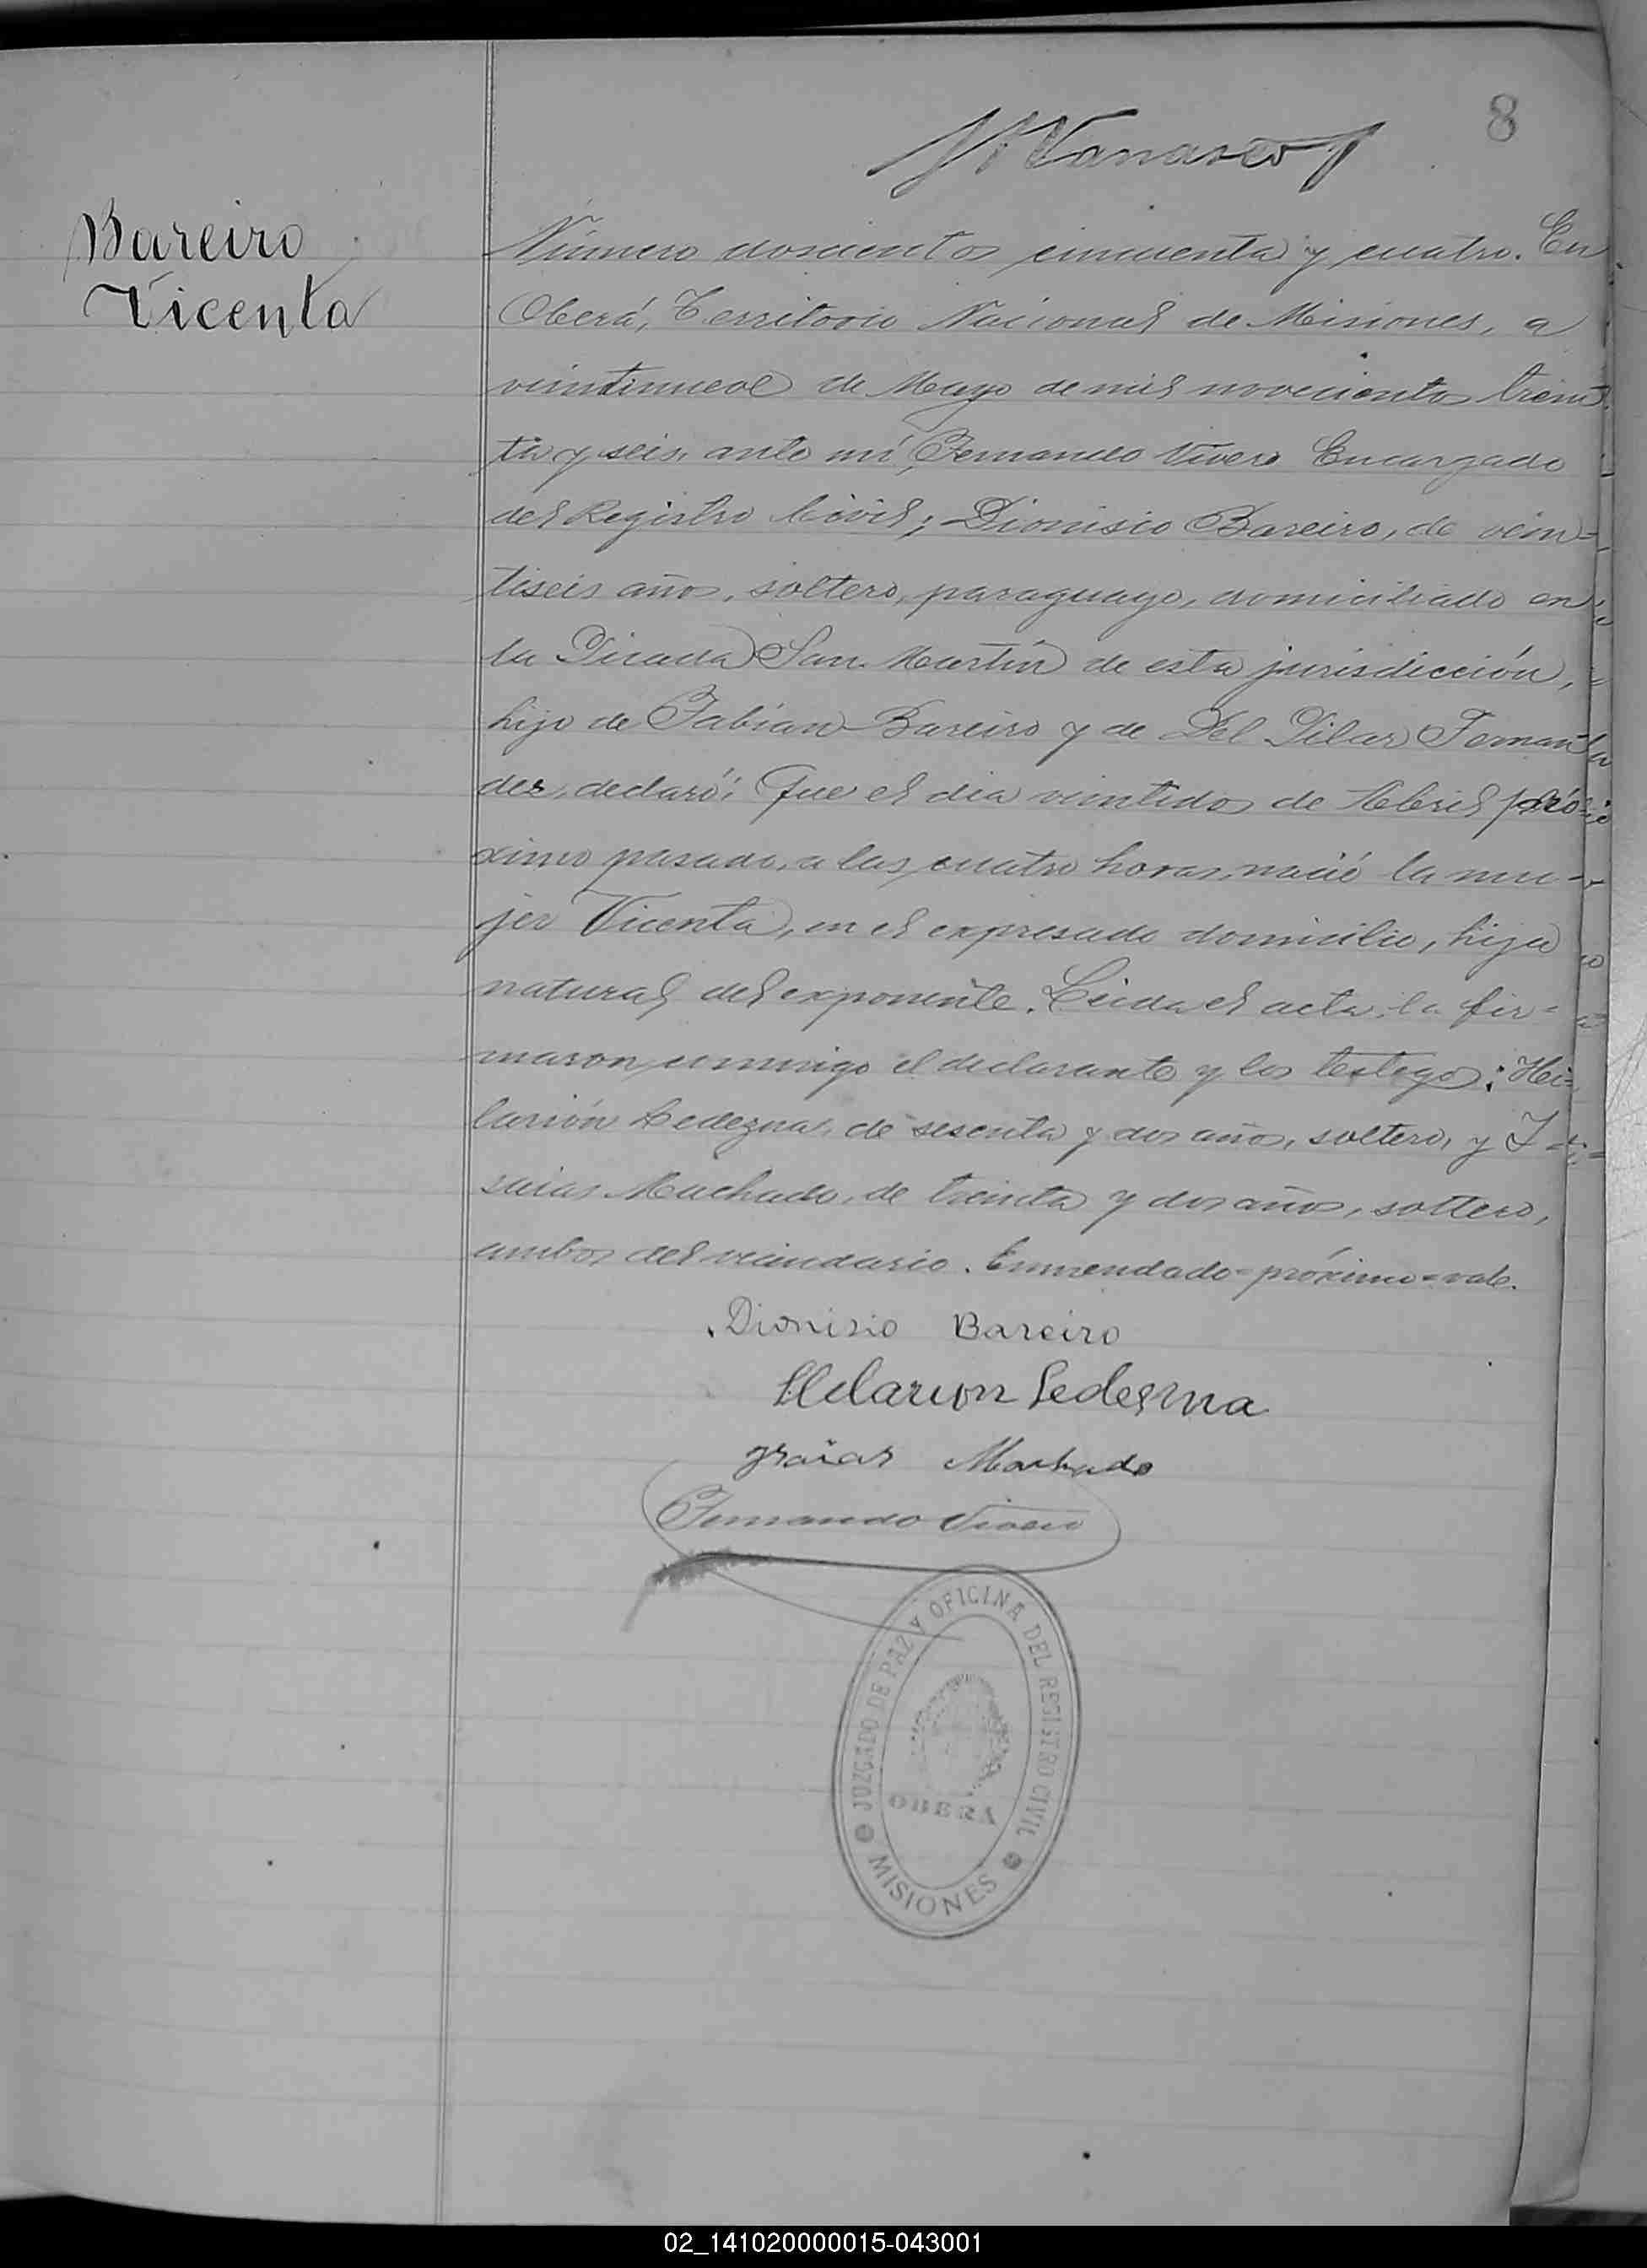 8
Bareiro
Vicenta
Número doscientos cincuenta y cuatro. En
Oberá, Territorio Nacional de Misiones, a
veintinueve de Mayo de mil novecientos trein
ta y seis, ante mí, Fernando Vivero Encargado
del Registro Civil; Dionisio Bareiro, de vein=
tiseis años, soltero, paraguayo, domiciliado en
la Picada San Martín de esta jurisdicción,
hijo de Fabian Bareiro y de Del Pilar Fernan
dez, declaró: Que el dia veintidos de Abril pró=
ximo pasado, a las cuatro horas, nació la mu-
jer Vicenta, en el expresado domicilio, hija
natural del exponente. Leida el acta, la fir=
maron conmigo el declarante y los testigos: Hi=
larión Ledezma, de sesenta y dos años, soltero, y I=
saias Machado, de treinta y dos años, soltero,
ambos del vecindario. Enmendado=próximo=vale.
Dionisio Bareiro
Hilarion Ledesma
Machado
Fernando Vivero
JUZGADO DE PAZ Y OFICINA DEL REGISTRO CIVIL
OBERA
MISIONES
02_141020000015-043001